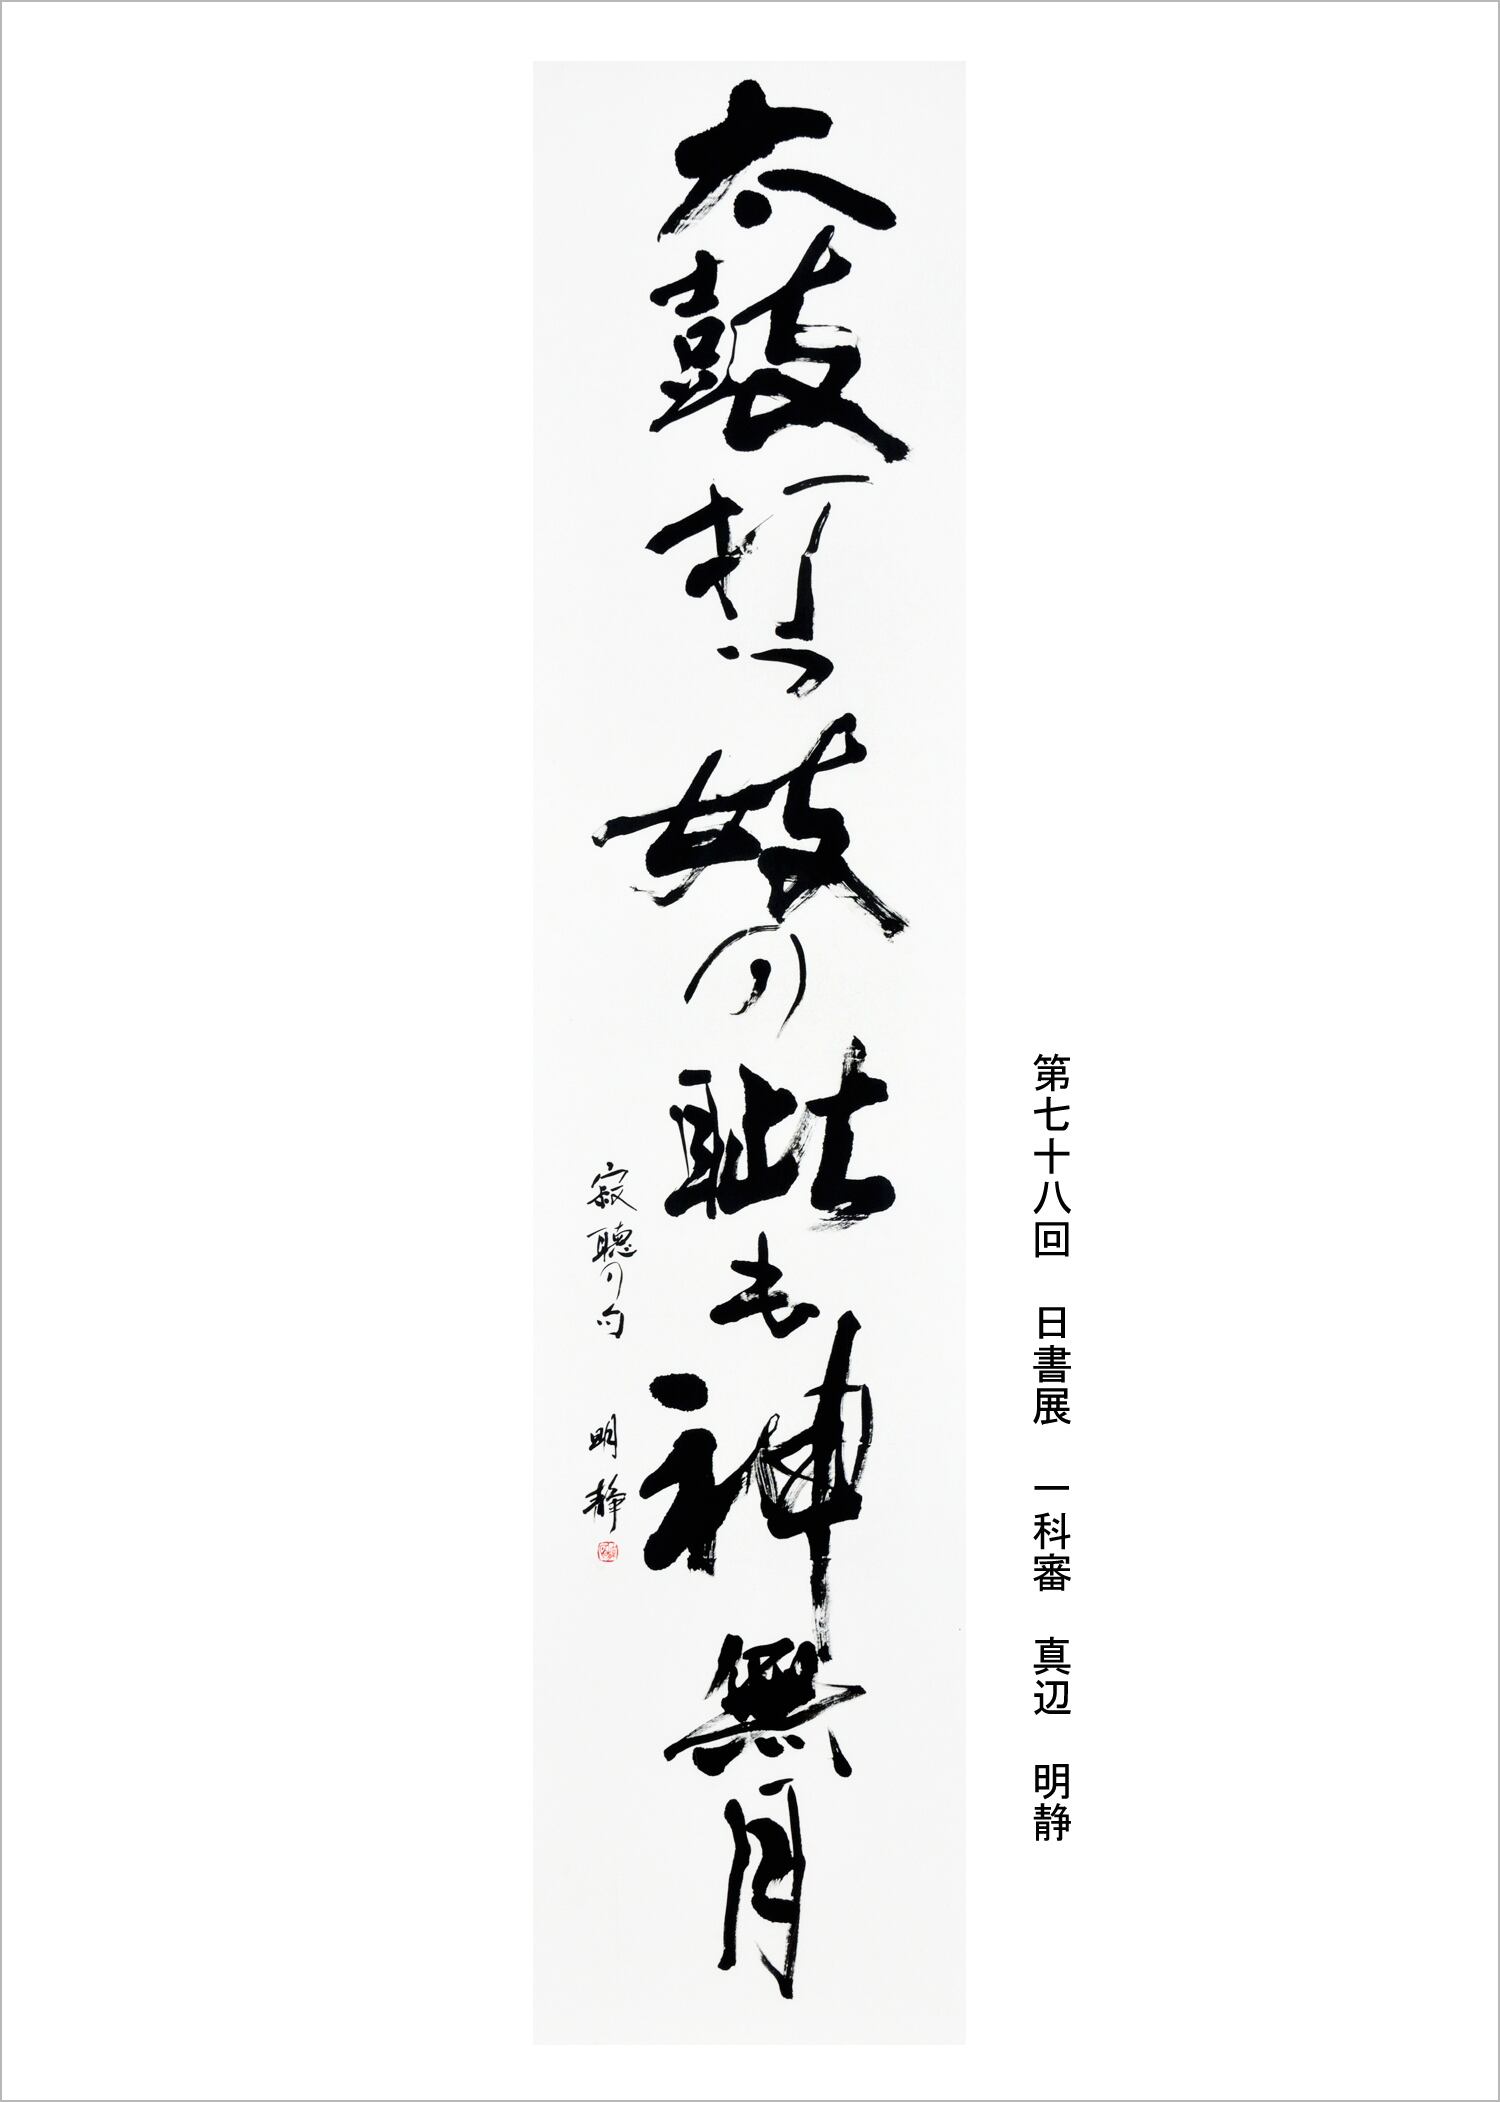 第七十八回　日書展　一科審　真辺　明静
太鼓打つ妓の眦も神無月
寂聴の句　明静